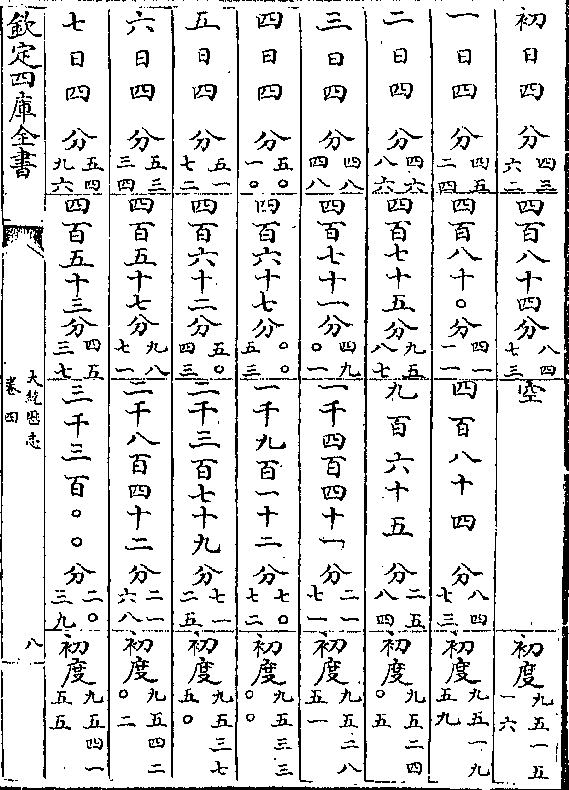 初日四分四三六二四百八十四分八四七三空初度九五一五一六
一日四分四五二四四百八十〇分四一一一四百八十四分八四七三初度九五一九五九
二日四分四六八六四百七十五分九五八七九百六十五分二五八四初度九五二四〇五
三日四分四八四八四百七十一分四九〇一一千四百四十一分二一七一初度九五二八五一
四日四分五〇一〇四百六十七分〇〇五三一千九百一十二分七〇七二初度九五三三〇〇
五日四分五一七二四百六十二分五〇四三二千三百七十九分七一二五初度九五三七五〇
六日四分五三三四四百五十七分九八七一二千八百四十二分二一六八初度九五四二〇二
七日四分五四九六四百五十三分四五三七三千三百〇〇分二〇三九初度九五四一五五
欽定四庫全書
大統厯志
卷四
八